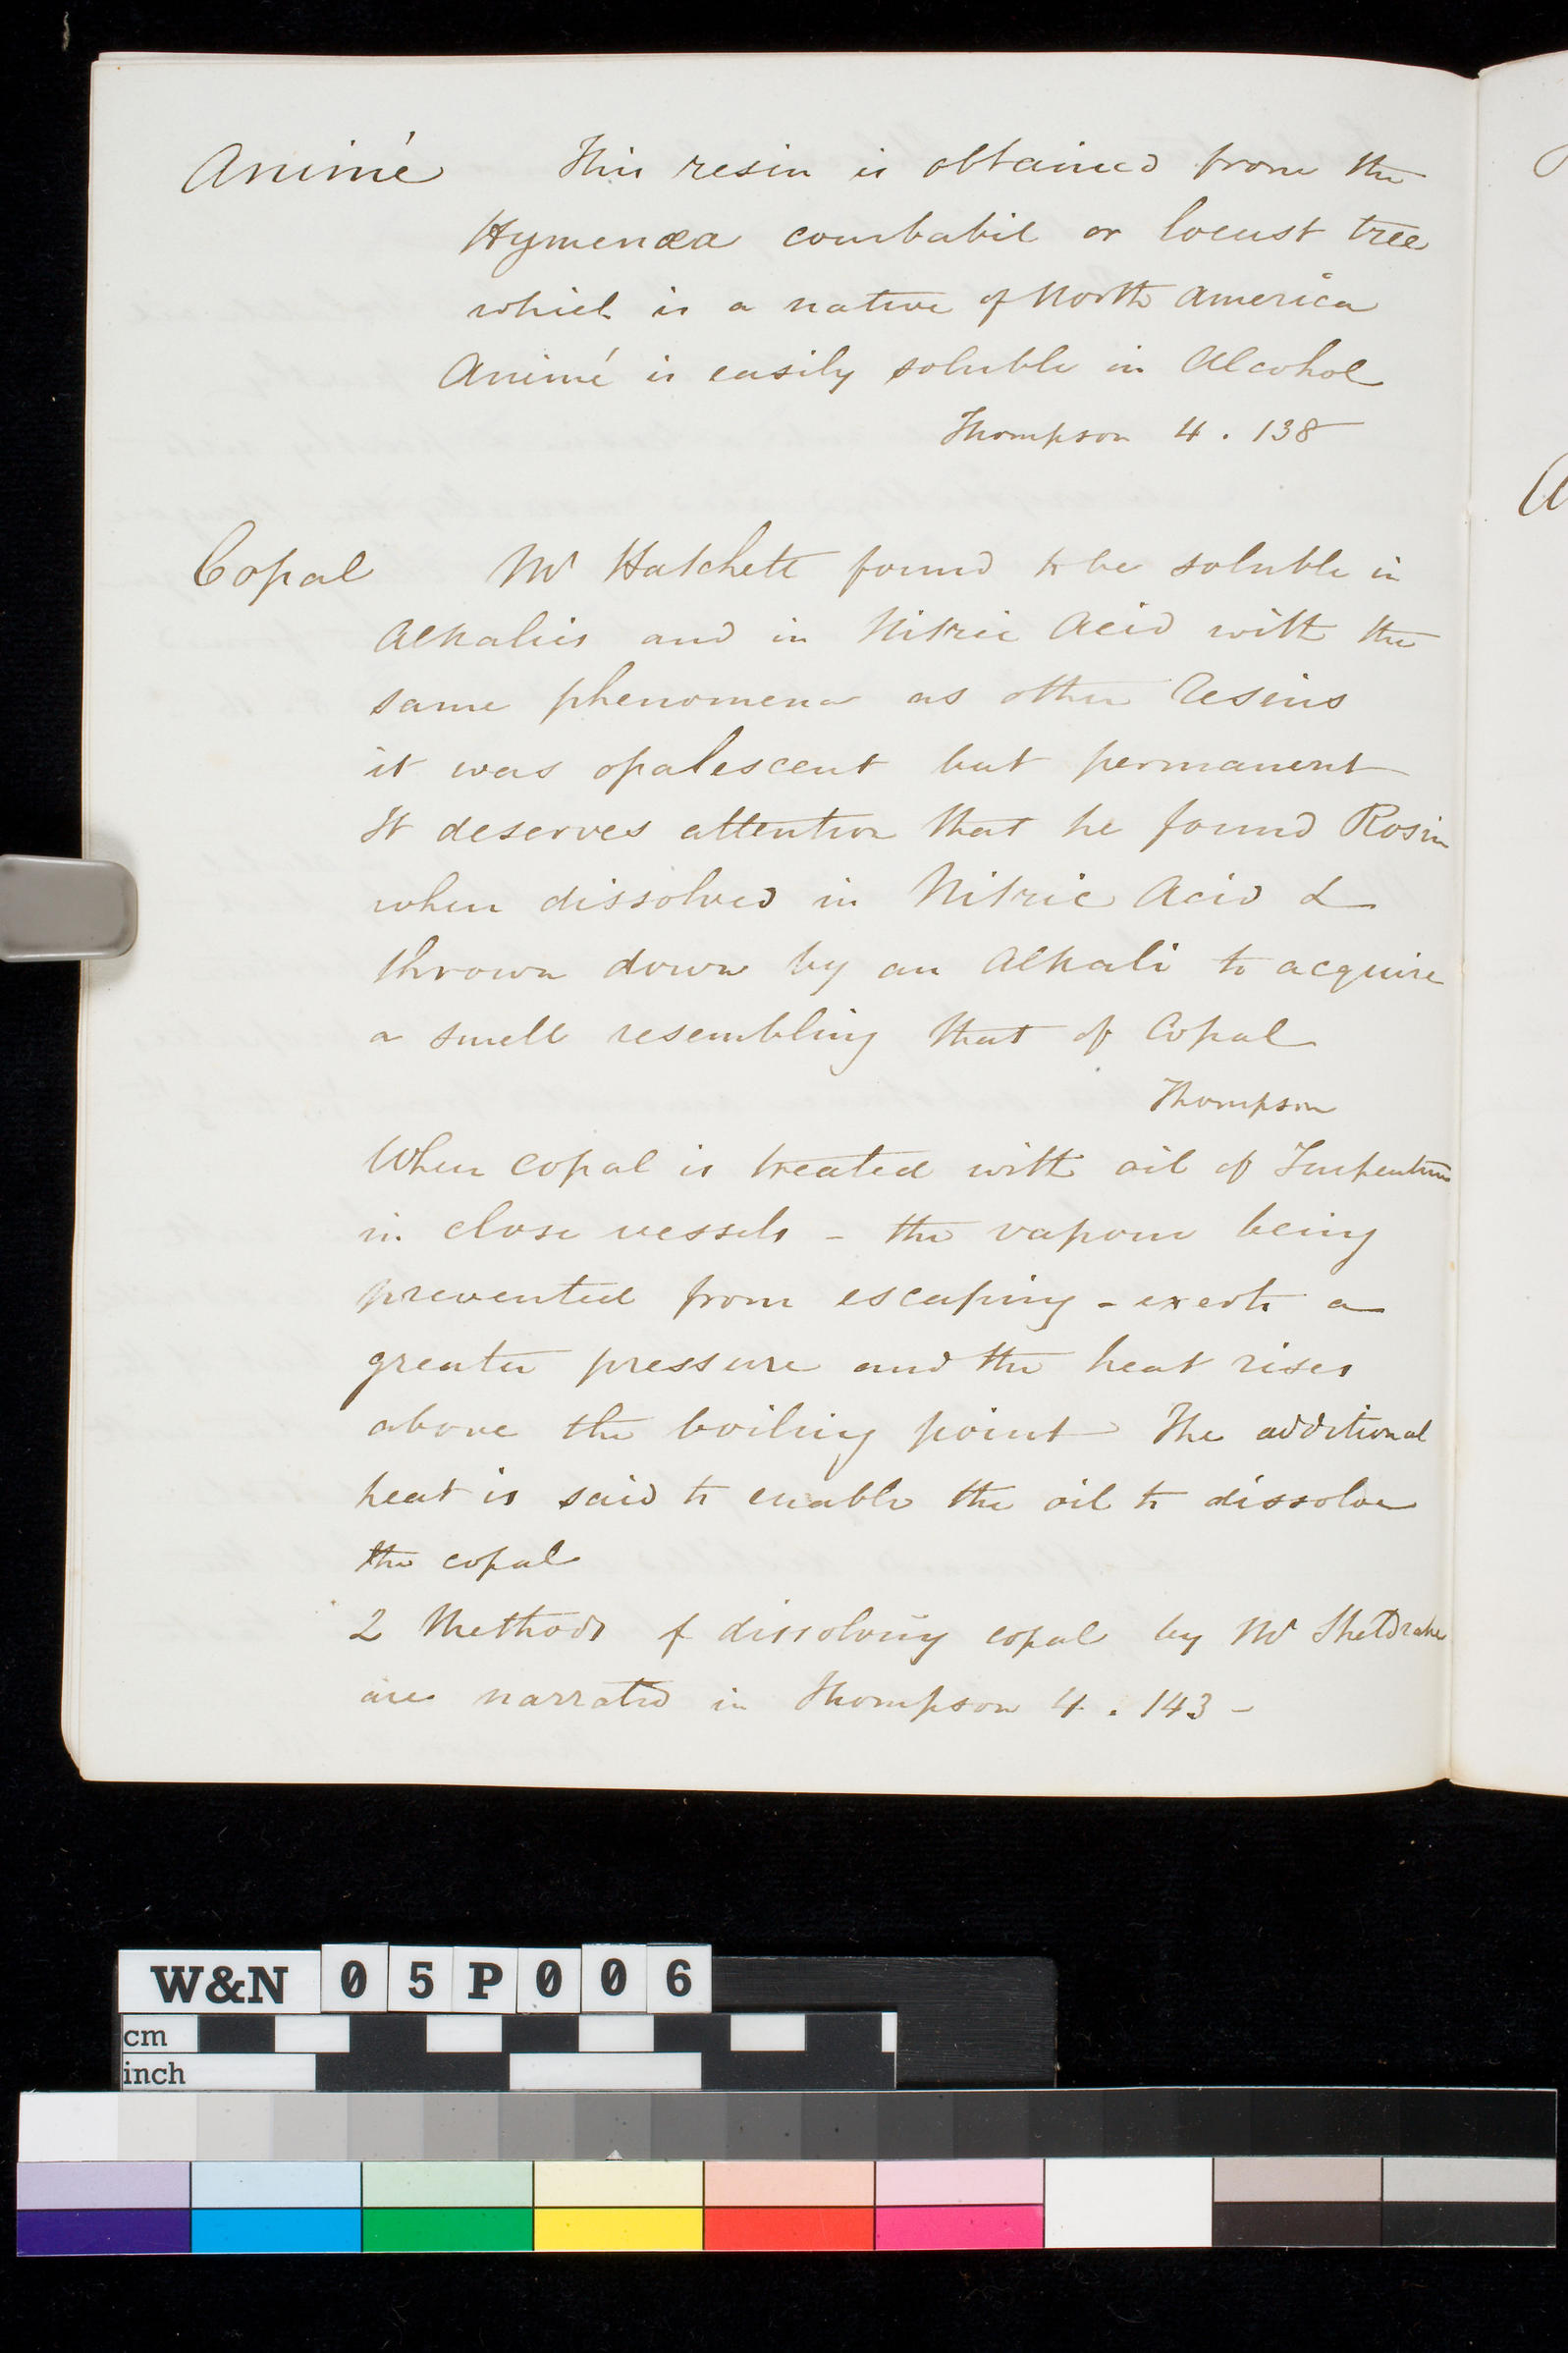 Animé This resin is obtained from the
Hymenæa courbabil or locust tree
which is a native of North America
Animé is easily soluble in Alcohol
Thompson 4 . 138
Copal Mr Hatchett found to be soluble in
Alkalies and in Nitric Acid with the
same phenomena as other Resins
it was opalescent but permanent
It deserves attention that he found Rosin
when dissolved in Nitric Acid &
thrown down by an Alkali to acquire
a smell resembling that of Copal
Thompson
When copal is treated with oil of Turpentine
in close vessels - the vapour being
prevented from escaping - exerts a
greater pressure and the heat rises
above the boiling point The additional
heat is said to enable the oil to dissolve
the copal
2 Methods of dissolving copal by Mr Sheldrake
are narrated in Thompson 4 . 143 -
W&N 05P006
cm
inch